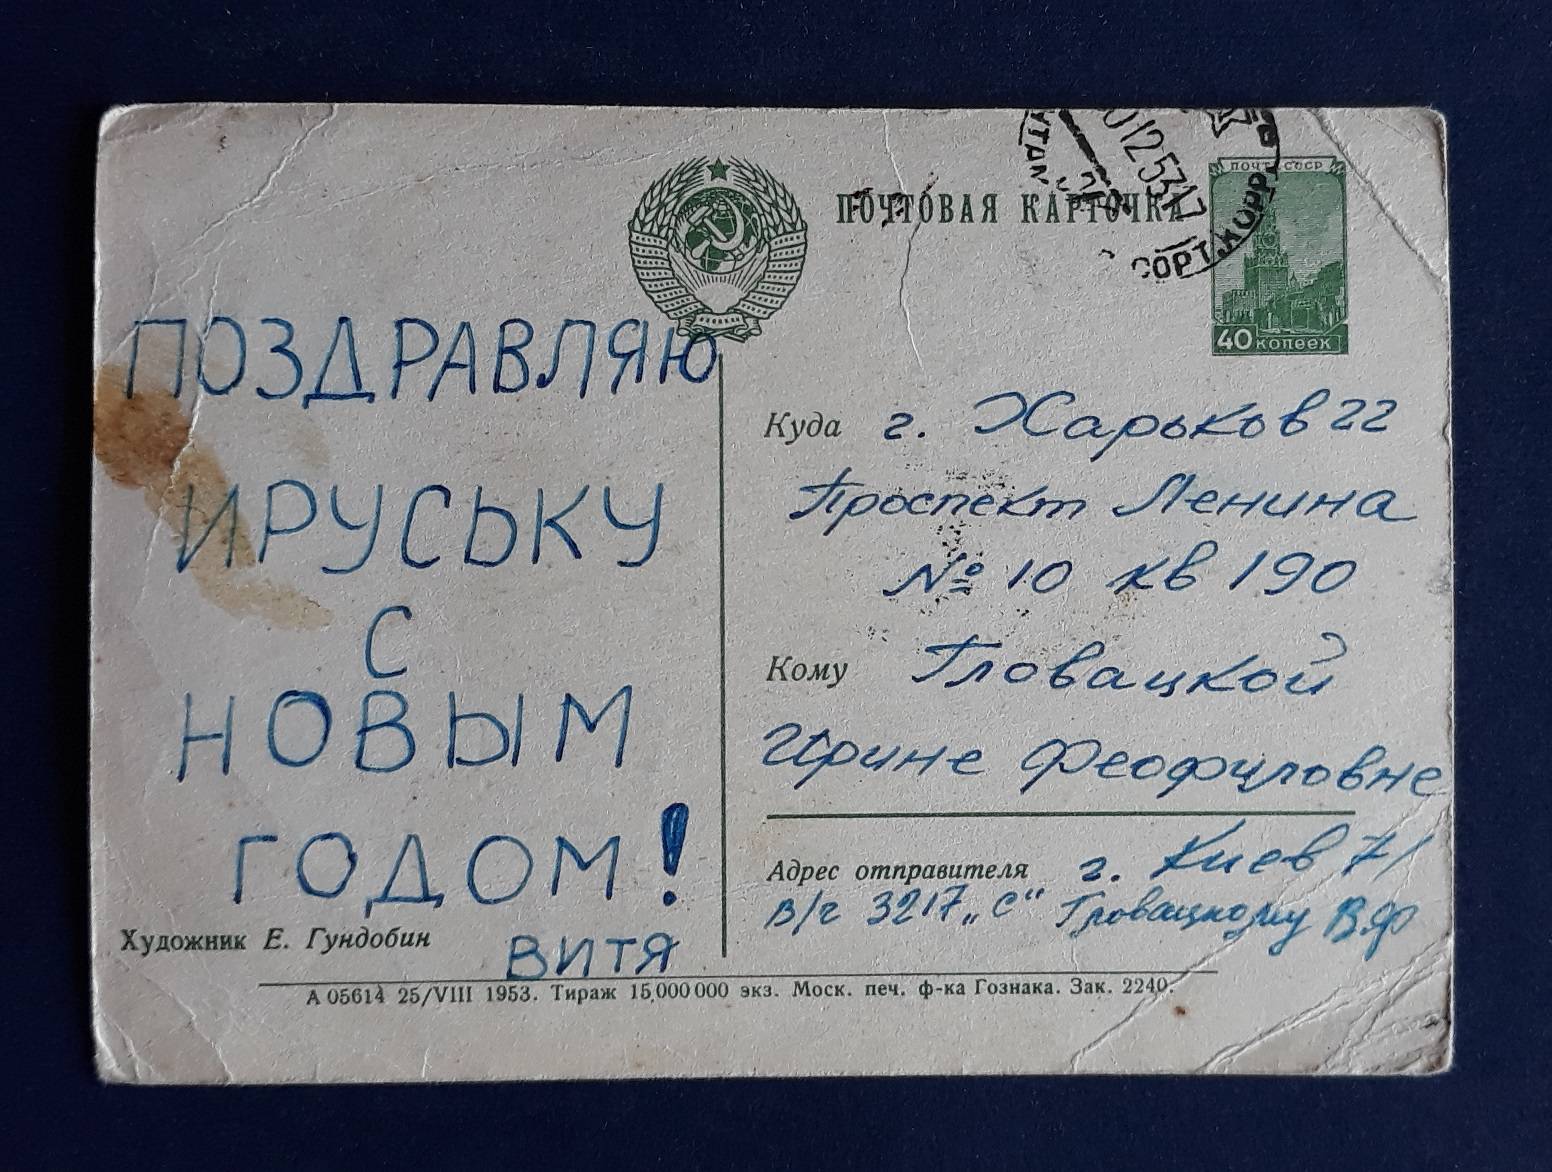 ПОЧТОВАЯ КАРТОЧКА
ПОЧТА СССР
40 копеек
12 53 17
СОРТ. КОРР.
ПОЗДРАВЛЯЮ
ИРУСЬКУ
С
НОВЫМ
ГОДОМ!
ВИТЯ
Художник Е. Гундобин
Куда г. Харьков 22
Проспект Ленина
№ 10 кв 190
Кому Гловацкой
Ирине Феофиловне
Адрес отправителя г. Киев 71
в/ч 3217 „С“ Гловацкому В.Ф
А 05614 25/VIII 1953. Тираж 15.000 000 экз. Моск. печ. ф-ка Гознака. Зак. 2240.